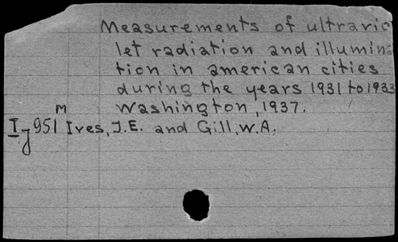 Measurements of ultravio
let radiation and illumina
tion in american cities
during the years 1931 to 1933
Washington, 1937.
M
Iy951 Ives, J.E. and Gill, W.A.